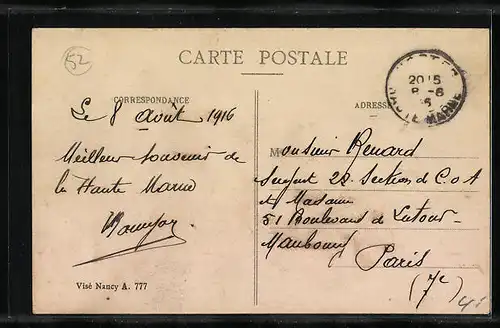 52
CARTE POSTALE
CORRESPONDANCE
Le 8 août 1916
Meilleur souvenir de
la Haute Marne
Visé Nancy A. 777
ADRESSE
20 15
8 -8
16
HAUTE MARNE
Monsieur Renard
Sergent 22e Section de C.O.A
et Madame
51 Boulevard de Latour-
Maubourg
Paris
(7e)